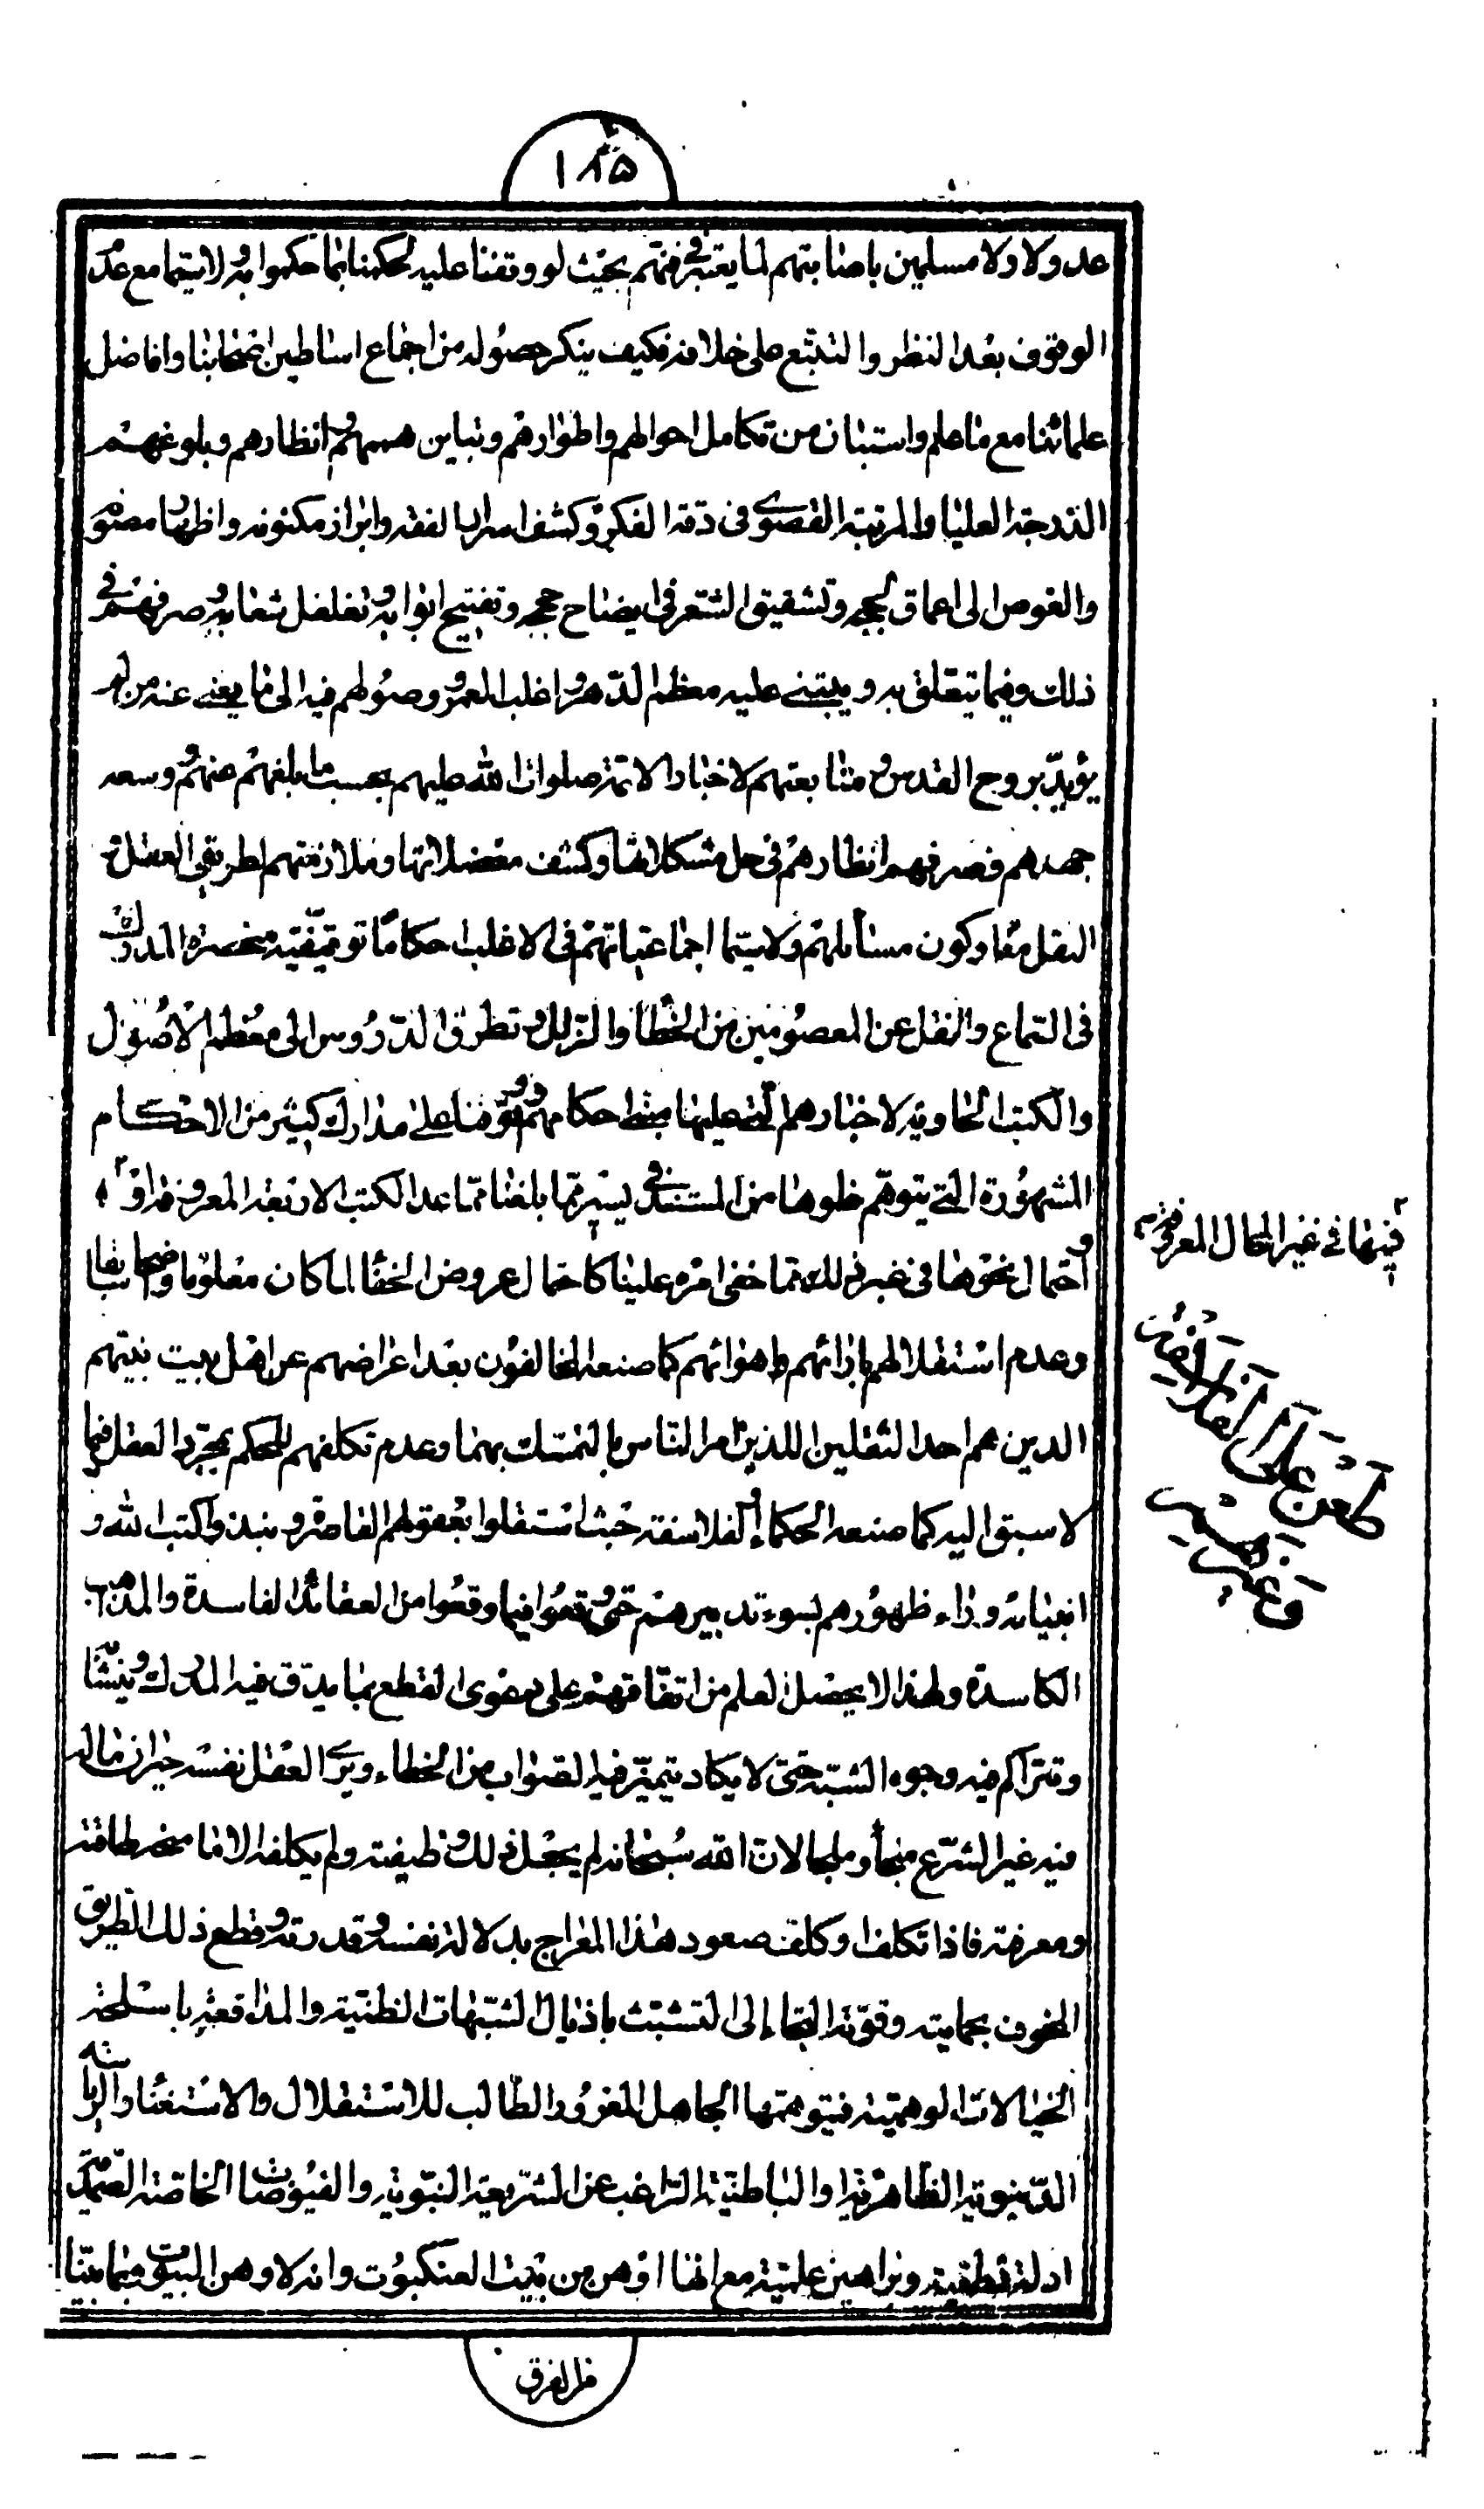 ١٨٥
عدولا ولا مسلمين باصابتهم لما يعتبر في فنهم بحيث لو وقفنا عليه لحكمنا بما حكموا به ولا سيما مع عدم
الوقوف بعد النظر والتتبع على خلافه فكيف ينكر حصوله من اجماع اساطين اصحابنا وافاضل
علمائنا مع ما علم واستبان من تكامل احوالهم واطوارهم وتباين هممهم وانظارهم وبلوغهم
الدرجة العليا والمرتبة القصوى في دقة الفكر وكشف اسرار الفقه وابراز مكنونه واظهار مضمره
والغوص الى اعماق لججه وتشقيق الشعر في ايضاح حججه وتفتيح ابوابه وتغلغل شعابه وصرفهم في
ذلك وفيما تتعلق به ويبتنى عليه معظم الدهر واغلب العمر ووصولهم فيه الى ما يغنى عنه من لم
يؤيد بروح القدس ومتابعتهم لاخبار الائمة صلوات الله عليهم بحسب ما بلغهم منهم وسعه
جهدهم وصرفهم انظارهم في حل مشكلاتها وكشف معضلاتها وملازمتهم لطريق العقل و
النقل معا وكون مسائلهم ولا سيما اجماعياتهم في الاغلب احكاما توقيفية منحصرة المدارك
في السماع والنقل عن المعصومين من الخطا والزلل وتطرق الدروس الى معظم الاصول
والكتب الحاوية لاخبارهم التي عليها مبنى احكامهم ووقوفنا على مدارك كثير من الاحكام
المشهورة التي يتوهم خلوها من المستند في يسير مما بلغنا مما عدا الكتب الاربعة المعروفة
واحتمال نحوها في غير ذلك مما خفى امره علينا كاحتمال عروض الخفا لما كان معلوما واضحا سابقا
وعدم استقلالهم بارائهم واهوائهم كما صنعه المخالفون بعد اعراضهم عن اهل بيت نبيهم
الذين هم احد الثقلين اللذين امر الناس بالتمسك بهما وعدم تكلفهم للحكم بمجرد العقل فيما
لا سبق اليه كما صنعه الحكماء الفلاسفة حيث استقلوا بعقولهم القاصرة ونبذوا كتب الله و
انبيائه وراء ظهورهم بسوء تدبيرهم حتى وقعوا فيما وقعوا من العقائد الفاسدة والمذاهب
الكاسدة ولهذا لا يحصل العلم من اتفاقهم على دعوى القطع بما يدق فيه المدرك وينشا
وتتراكم فيه وجوه الشبه حتى لا يكاد يتميز فيه الصواب من الخطاء ويرى العقل نفسه حيران ماله
فيه غير الشرع منجأ وملجأ لان الله سبحانه لم يجعل ذلك وظيفته ولم يكلفه الا ما حضر طاقته
ومعرفته فاذا تكلفا وكلفه صعود هذا المعراج بدلالة نفسه وقدرته وقطع ذلك الطريق
المخوف بحمايته وقوته التجاء إلى التشبث باذيال الشبهات الظنية والمدافعة باسلحة
الخيالات الوهمية فيتوهمها الجاهل المغرور الطالب للاستقلال والاستغناء والرياسة
الدنيوية الظاهرية او الباطنية الراغب عن الشريعة النبوية والفيوضات الخاصة الصمدية
ادلة قطعية وبراهين علمية مع انها اوهن من بيت العنكبوت وانه لاوهن البيوت
من الفرق